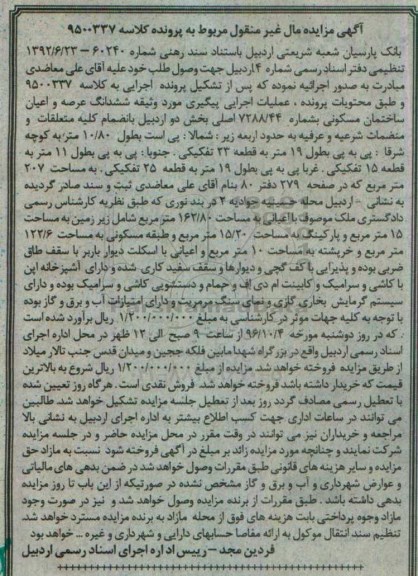 آگهی مزایده مال غیر منقول مربوط به پرونده کلاسه ۹۵۰۰۳۳۷
بانک پارسیان شعبه شریعتی اردبیل باستناد سند رهنی شماره ۶۰۲۴۰ – ۱۳۹۲/۶/۲۳
تنظیمی دفتر اسناد رسمی شماره ۴ اردبیل جهت وصول طلب خود علیه آقای علی معاضدی
مبادرت به صدور اجرائیه نموده که پس از تشکیل پرونده اجرایی به کلاسه ۹۵۰۰۳۳۷
و طبق محتویات پرونده ، عملیات اجرایی پیگیری مورد وثیقه ششدانگ عرصه و اعیان
ساختمان مسکونی بشماره ۷۲۸۸/۴۴ اصلی بخش دو اردبیل بانضمام کلیه متعلقات و
منضمات شرعیه و عرفیه به حدود اربعه زیر : شمالا : پی است بطول ۱۰/۸۰ متر؛به کوچه
شرقا : پی به پی بطول ۱۹ متر به قطعه ۲۳ تفکیکی . جنوبا : پی به پی بطول ۱۱ متر به
قطعه ۱۵ تفکیکی . غربا پی به پی بطول ۱۹ متر به قطعه ۲۵ تفکیکی ، به مساحت ۲۰۷
متر مربع که در صفحه ۲۷۹ دفتر ۸۰ بنام آقای علی معاضدی ثبت و سند صادر گردیده
به نشانی - اردبیل محله حسینیه جوادیه ۲ در بند نوری که طبق نظریه کارشناس رسمی
دادگستری ملک موصوف با اعیانی به مساحت ۱۶۲/۸۰ متر مربع شامل زیر زمین به مساحت
۱۵ متر مربع و پارکینگ به مساحت ۱۵/۲۰ متر مربع و طبقه مسکونی به مساحت ۱۲۲/۶
متر مربع و خرپشته به مساحت ۱۰ متر مربع و اعیانی با اسکلت دیوار باربر با سقف طاق
ضربی بوده و پذیرایی با کف گچی و دیوارها و سقف سفید کاری شده و دارای آشپزخانه اپن
با کاشی و سرامیک و کابینت ام دی اف و حمام و دستشویی کاشی و سرامیک بوده و دارای
سیستم گرمایش بخاری گازی و نمای سنگ مرمریت و دارای امتیازات آب و برق و گاز بوده
با توجه به کلیه جهات موثر در کارشناسی به مبلغ ۱/۲۰۰/۰۰۰/۰۰۰ ریال برآورد شده است
. که در روز دوشنبه مورخه ۹۶/۱۰/۴ از ساعت ۹ صبح الی ۱۲ ظهر در محل اداره اجرای
اسناد رسمی اردبیل واقع در بزرگراه شهدا مابین فلکه ججین و میدان قدس جنب تالار میلاد
از طریق مزایده فروخته خواهد شد. مزایده از مبلغ ۱/۲۰۰/۰۰۰/۰۰۰ ریال شروع به بالاترین
قیمت که خریدار داشته باشد فروخته خواهد شد. فروش نقدی است . هرگاه روز تعیین شده
با تعطیل رسمی مصادف گردد روز بعد از تعطیل جلسه مزایده تشکیل خواهد شد. طالبین
می توانند در ساعات اداری جهت کسب اطلاع بیشتر به اداره اجرای اردبیل به نشانی بالا
مراجعه و خریداران نیز می توانند در وقت مقرر در محل مزایده حاضر و در جلسه مزایده
شرکت نمایند و چنانچه مورد مزایده زائد بر مبلغ در آگهی فروخته شود نسبت به مازاد حق
مزایده و سایر هزینه های قانونی طبق مقررات وصول خواهد شد در ضمن بدهی های مالیاتی
و عوارض شهرداری و آب و برق و گاز مشخص نشده در صورتیکه از این باب تا روز مزایده
بدهی داشته باشد . طبق مقررات از برنده مزایده وصول خواهد شد و نیز در صورت وجود
مازاد وجوه پرداختی بابت هزینه های فوق از محله مازاد به برنده مزایده مسترد خواهد شد.
تنظیم سند انتقال موکول به ارائه مفاصا حسابهای دارایی و شهرداری و غیره ... خواهد بود
فردین مجد – رییس اداره اجرای اسناد رسمی اردبیل